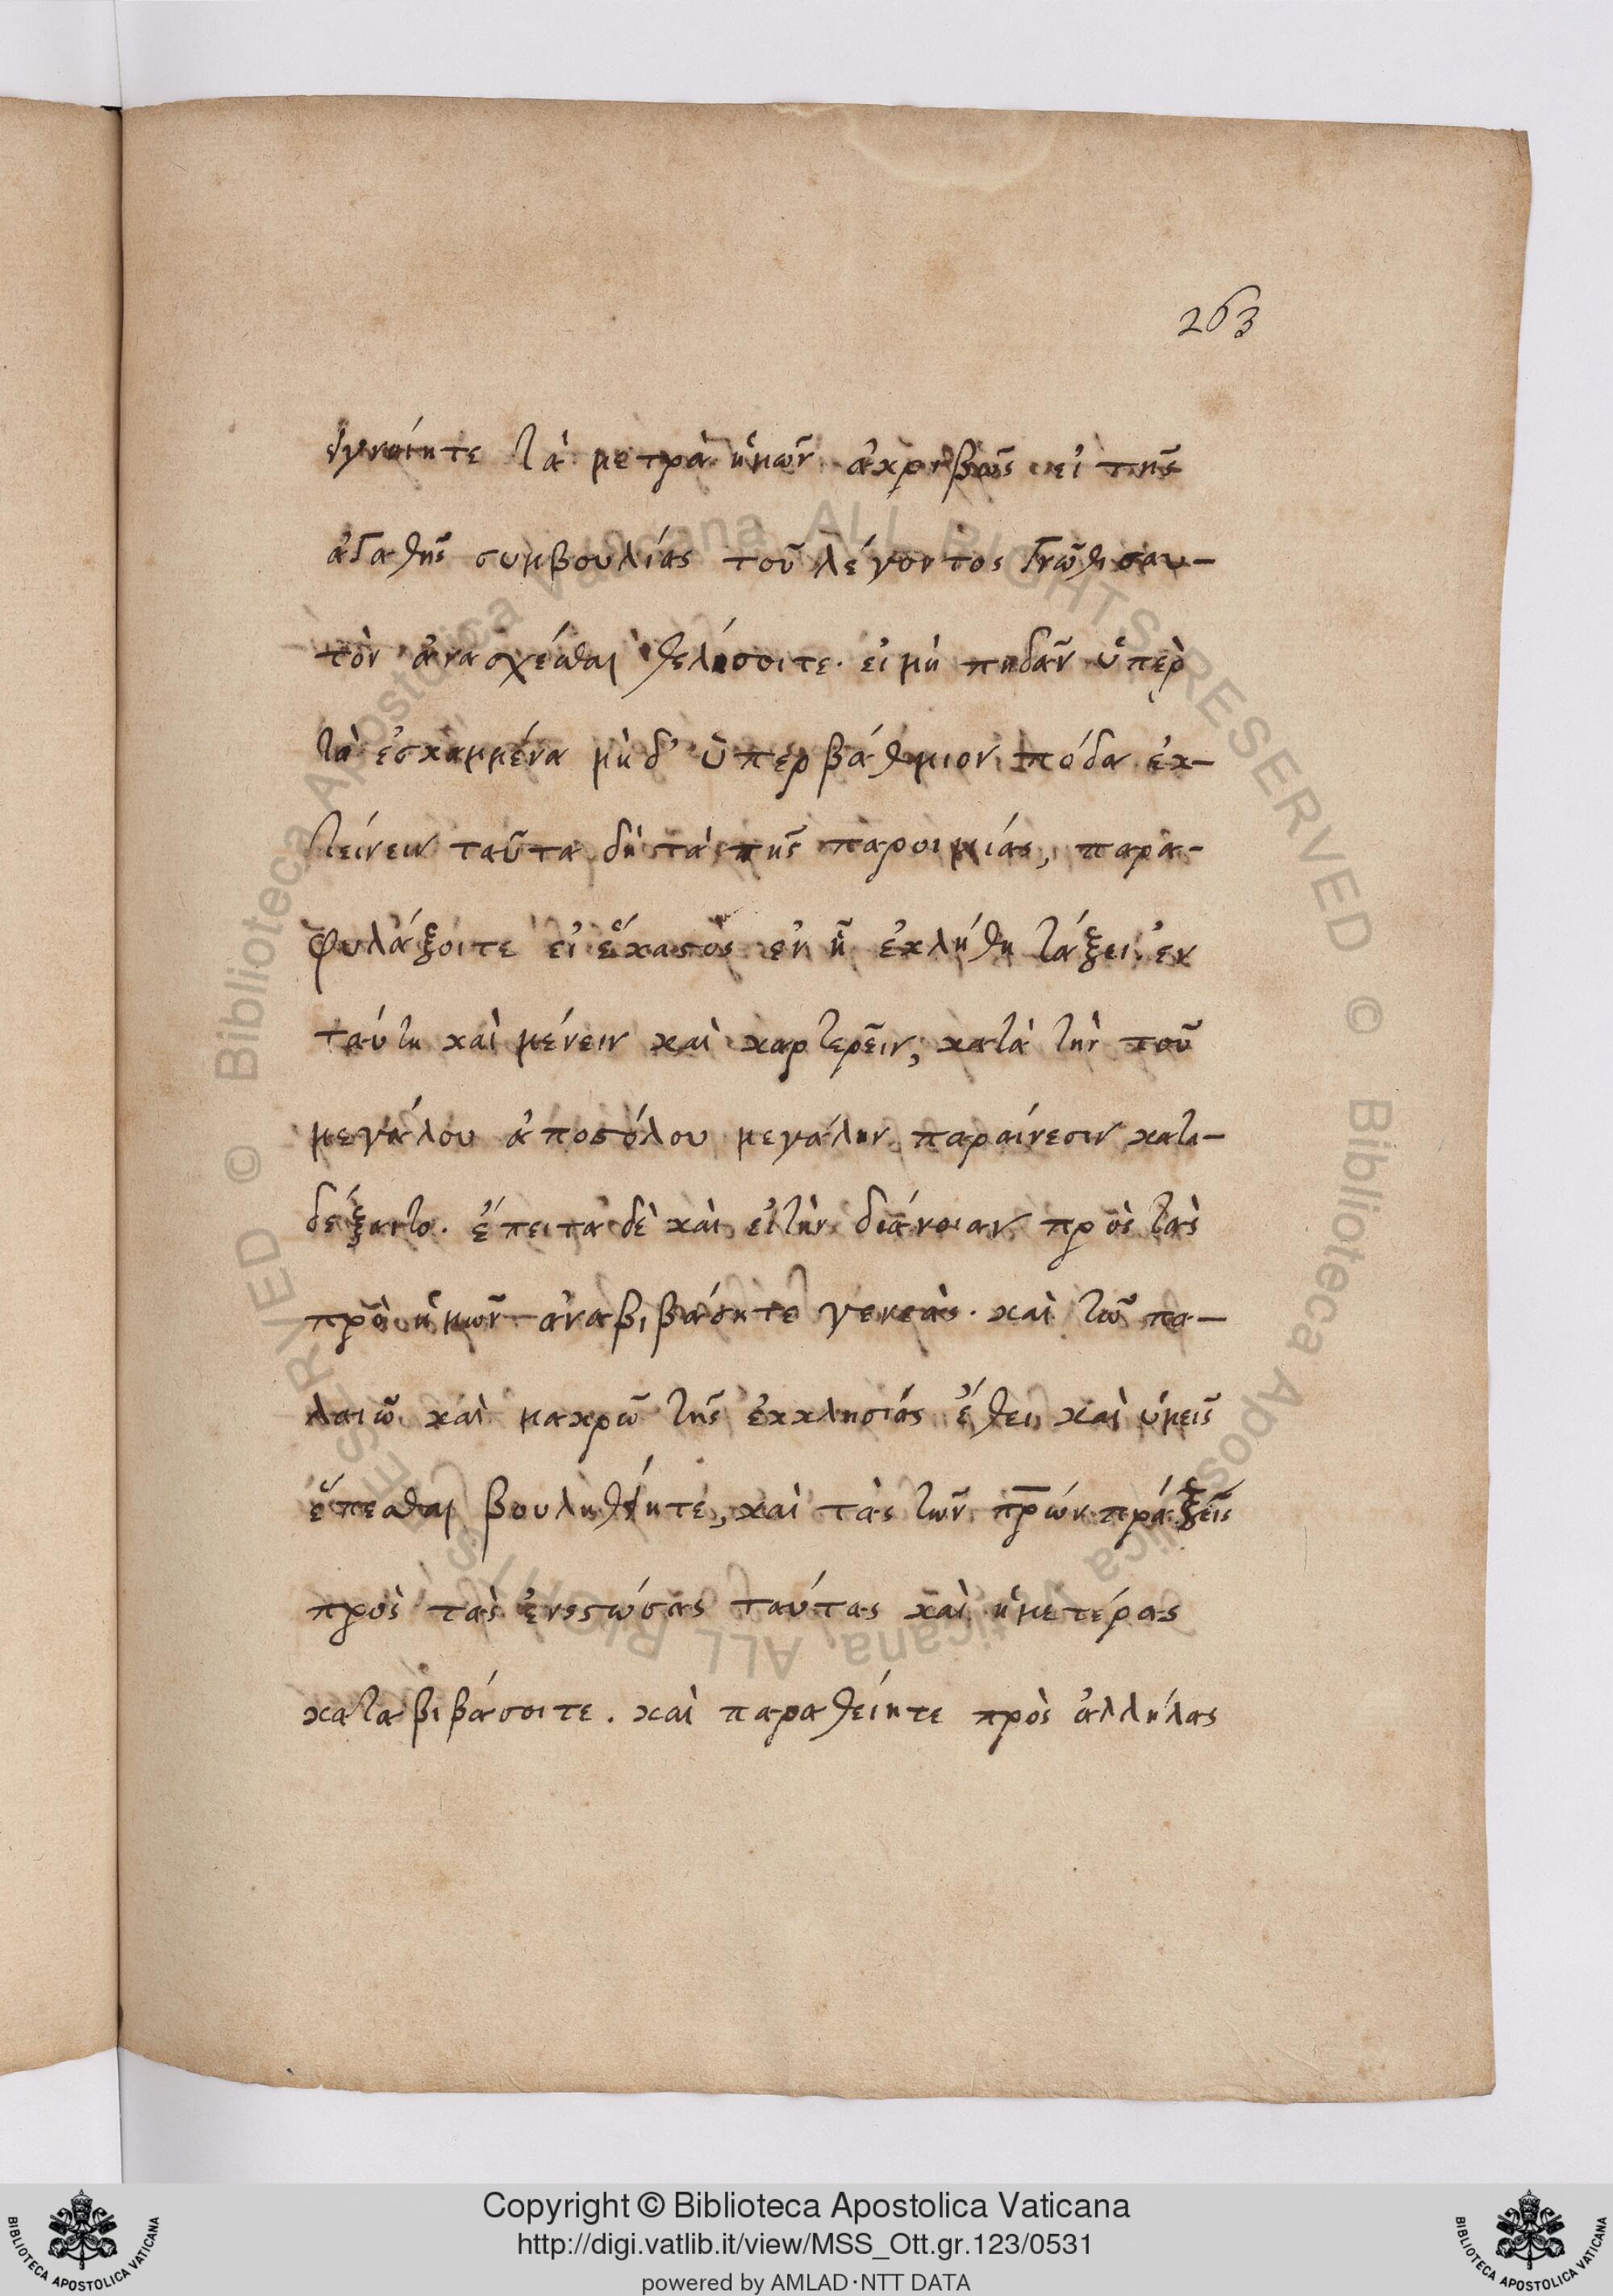 263
γνοίητε τὰ μετρὰ ἡμῶν ἀκριβῶς εἰ τῆς
ἀγαθῆς συμβουλίας τοῦ λέγοντος Γνῶθι σαυ-
τὸν ἀνασχέσθαι θελήσοιτε· εἰ μὴ πηδᾶν ὑπὲρ
τὰ ἐσκαμμένα μὴδ' ὑπερβάθμιον πόδα ἐκ-
τείνειν ταῦτα δὴ τὰ τῆς παροιμίας, παρα-
φυλάξοιτε εἰ ἕκαστος ἐν ᾗ ἐκλήθη τάξει ἐν
ταύτῃ καὶ μένειν καὶ καρτερεῖν, κατὰ τὴν τοῦ
μεγάλου ἀποστόλου μεγάλην παραίνεσιν κατα-
δέξαιτο. ἔπειτα δὲ καὶ εἰ τὴν διάνοιαν πρὸς τὰς
πρὸ ἡμῶν ἀναβιβάσητε γενεὰς· καὶ τῶ πα-
λαιῶ καὶ μακρῶ τῆς ἐκκλησίας ἔθει καὶ ὑμεῖς
ἕπεσθαι βουληθείητε, καὶ τὰς τῶν πρ̅ων πράξεις
πρὸς τὰς ἐνεστώσας ταύτας καὶ ἡμετέρας
καταβιβάσοιτε. καὶ παραθείητε πρὸς ἀλλήλας
© Biblioteca Apostolica Vaticana ALL RIGHTS RESERVED © Biblioteca Apostolica Vaticana, ALL RIGHTS RESERVED
Copyright © Biblioteca Apostolica Vaticana
http://digi.vatlib.it/view/MSS_Ott.gr.123/0531
powered by AMLAD·NTT DATA
BIBLIOTECA APOSTOLICA VATICANA
BIBLIOTECA APOSTOLICA VATICANA